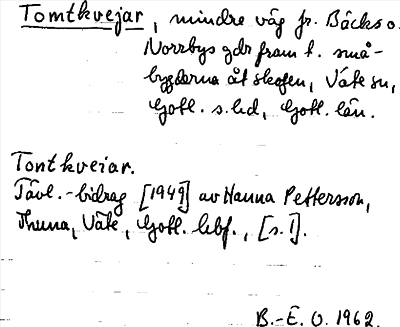 Tomtkvejar, mindre väg fr. Bäcks o.
Norrbys gdr fram t. små-
bygderna åt skogen, Väte sn,
Gotl. s. hd, Gotl. län.
Tontkveiar.
Tävl.-bidrag [1949] av Hanna Pettersson,
Thuna, Väte, Gotl. lbf., [s. 1].
B.-E. O. 1962.